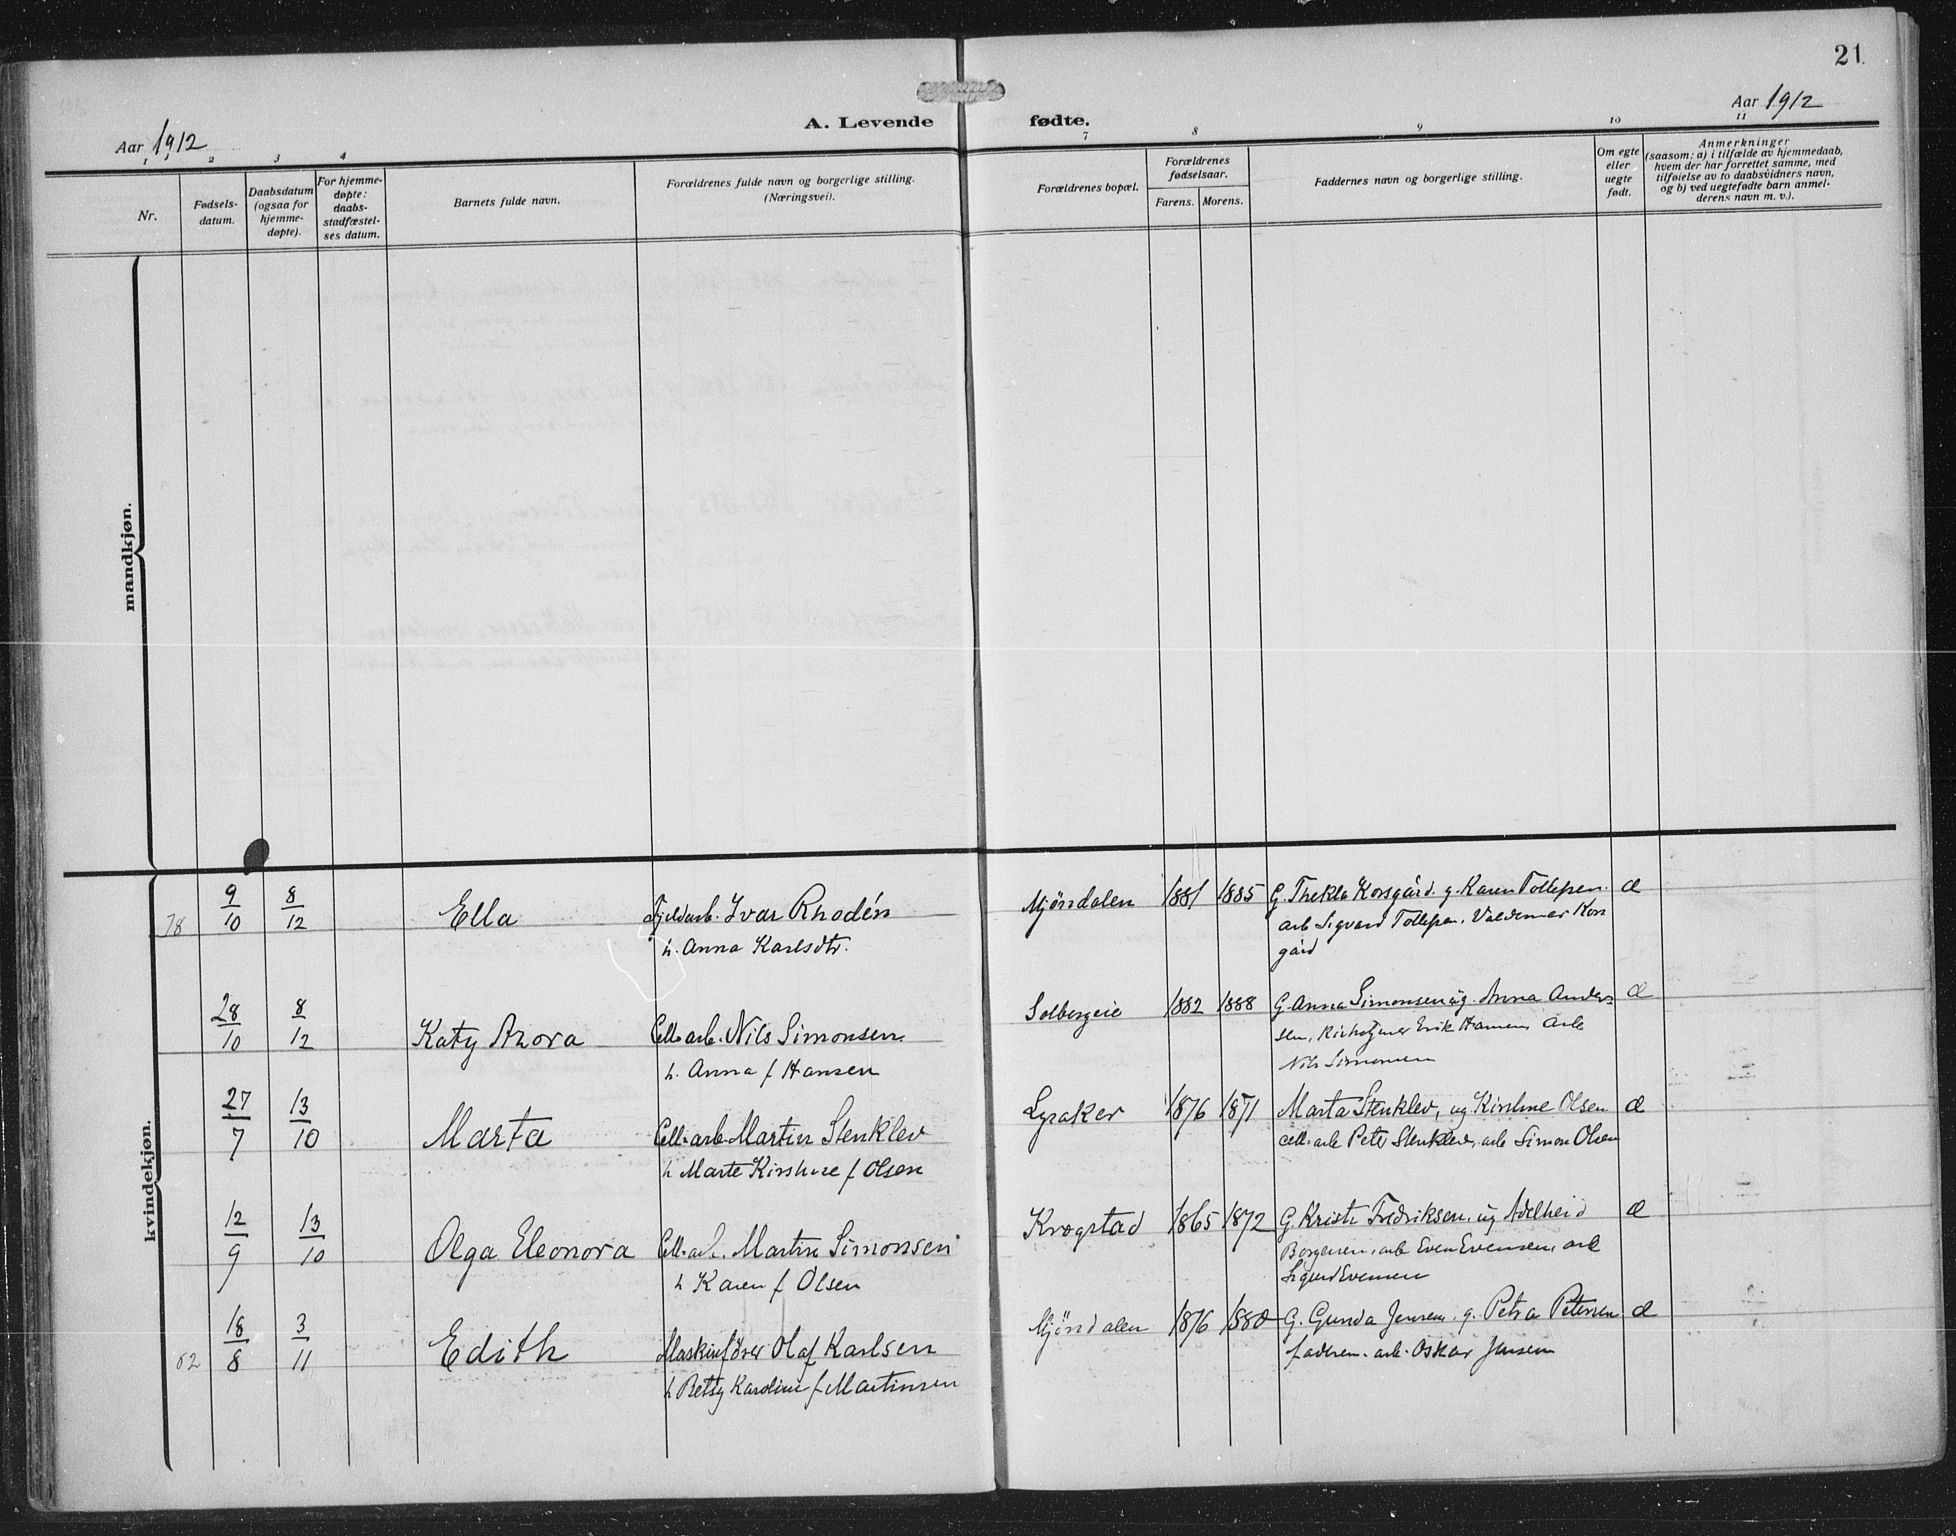 21
Aar 1912
A. Levende fødte.
Aar 1912
1 2 3 4 7 8 9 10 11
Nr.
Fødsels-
datum.
Daabsdatum
(ogsaa for
hjemme-
døpte).
For hjemme-
døpte:
daabs-
stadfæstel-
ses datum.
Barnets fulde navn.
Forældrenes fulde navn og borgerlige stilling.
(Næringsvei).
Forældrenes bopæl.
Forældrenes
fødselsaar.
Farens. Morens.
Faddernes navn og borgerlige stilling.
Om egte
eller
uegte
født.
Anmerkninger
(saasom: a) i tilfælde av hjemmedaab,
hvem der har forrettet samme, med
tilføielse av to daabsvidners navn,
og b) ved uegtefødte barn anmel-
derens navn m. v.).
mandkjøn.
kvindekjøn.
78 9/10 8/12 Ella Fjeldarb. Ivar Rhodén Mjöndalen 1881 1885 G. Thekla Korsgård. g. Karen Tollefsen. æ
h. Anna Karlsdtr. arb Sigvard Tollefsen. Valdemar Kors
gård
28/10 8/12 Katy Azora Cell.arb. Nils Simonsen Solbergeie 1882 1888 G. Anna Simonsen ug. Anna Ander- æ
h. Anna f Hansen sen, Erik Hansen arb
Nils Simonsen
27/7 13/10 Marta Cell.arb Martin Stenklev 1876 1871 Marta Stenklev, ug Kirstine Olsen æ
h Marte Kirstine f Olsen cell.arb Peter Stenklev, arb Simon Olsen
12/9 13/10 Olga Eleonora Cell.arb. Martin Simonsen Krogstad 1865 1872 G. Kristi Fredriksen. ug Adelheid æ
h Karen f Olsen Borgersen. arb Even Evensen. arb
Sigurd Evensen
82 18/8 3/11 Edith Maskinfører Olaf Karlsen Mjöndalen 1876 1880 G. Gunda Jensen. g. Petra Petersen æ
h Betsy Karoline f Martinsen faderen. arb. Oskar Jensen